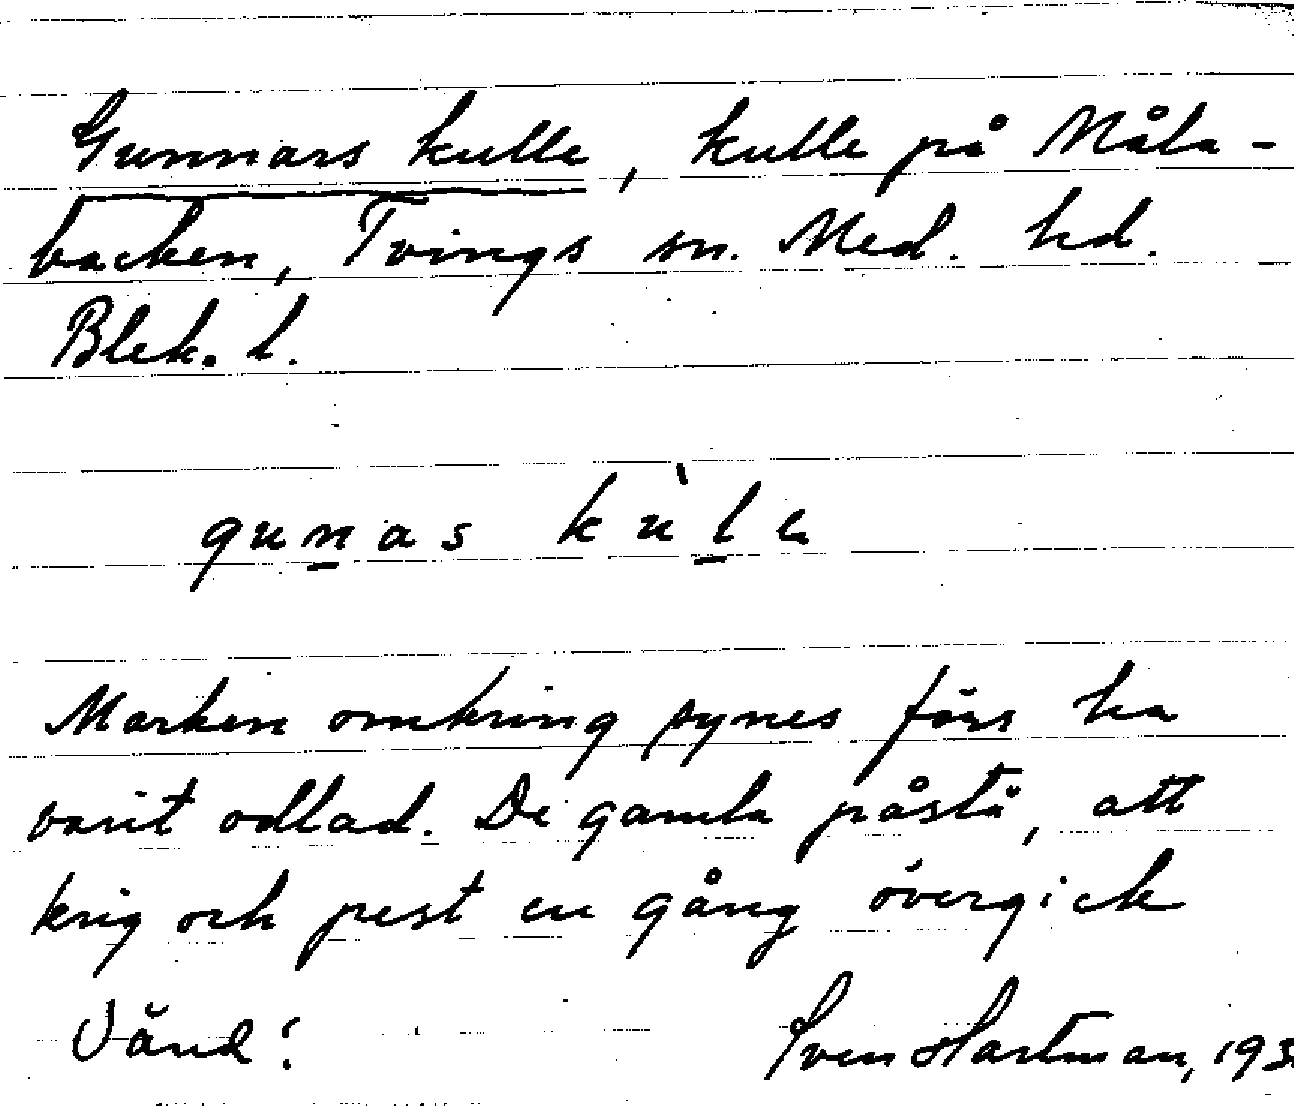 Gunnars kulle, kulle på Måla-
backen, Tvings sn. Med. hd.
Blek. l.
gunas kùle
Marken omkring synes förr ha
varit odlad. De gamla påstå, att
krig och pest en gång övergick
Vänd!
Sven Hartman, 193